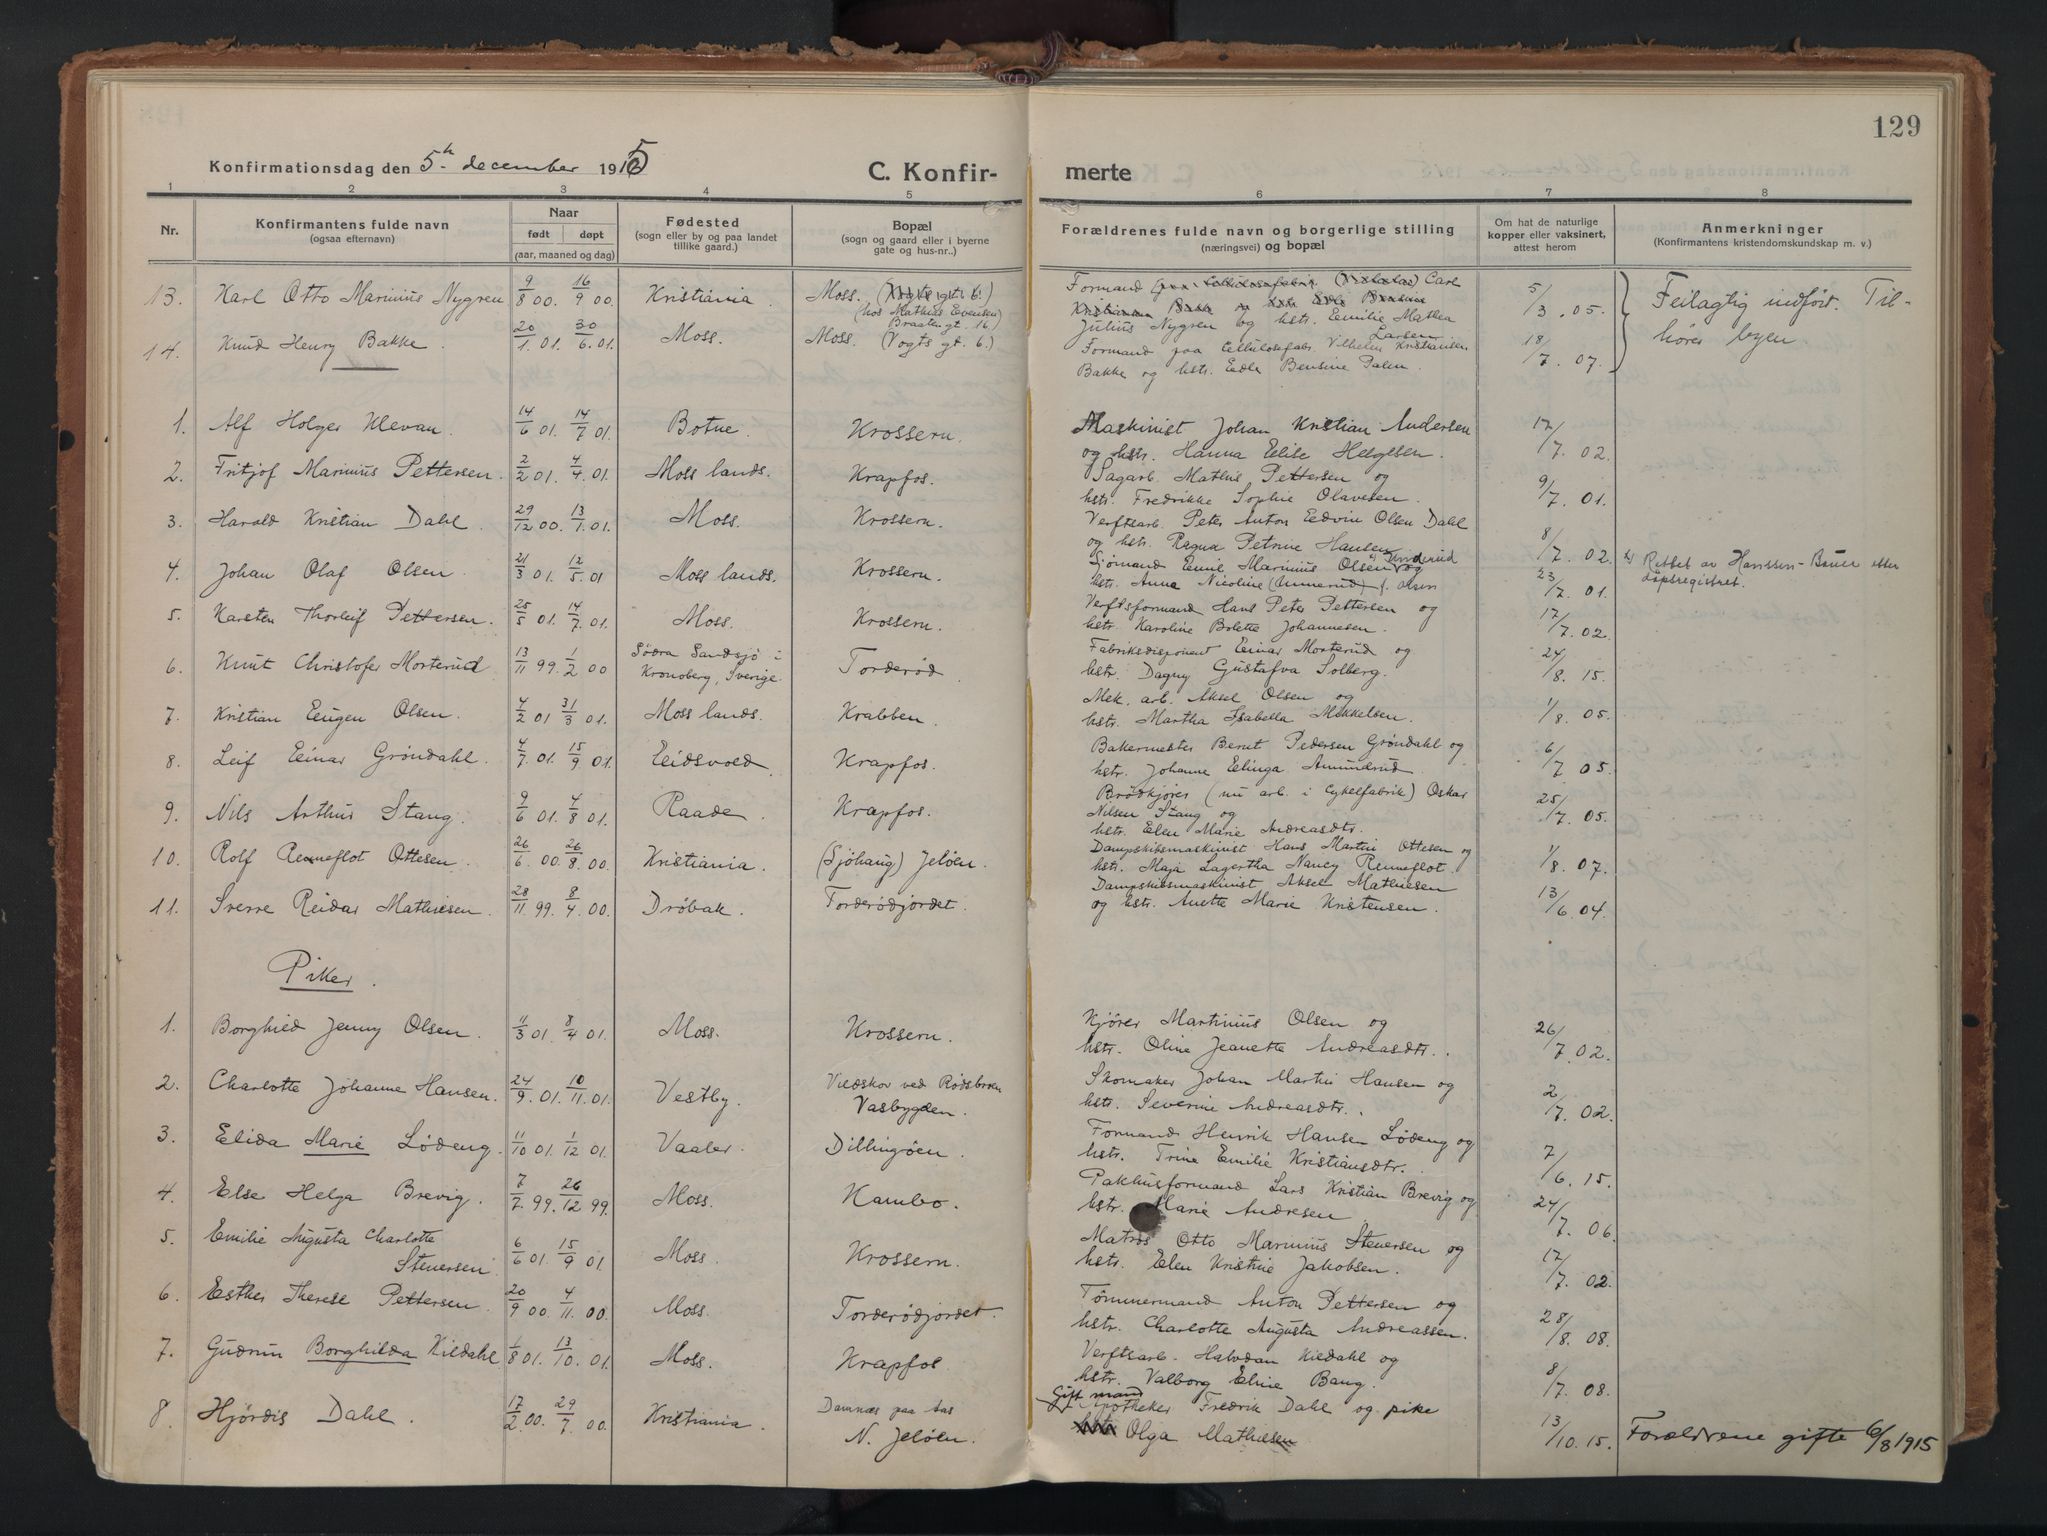 129
Konfirmationsdag den 5. december 1915
C. Konfirmerte
1 2 3 4 5 6 7 8
Nr. Konfirmantens fulde navn (ogsaa efternavn) Naar født døpt (aar, maaned og dag) Fødested (sogn eller by og paa landet tillike gaard.) Bopæl (sogn og gaard eller i byerne gate og hus-nr..) Forældrenes fulde navn og borgerlige stilling (næringsvei) og bopæl Om hat de naturlige kopper eller vaksinert, attest herom Anmerkninger (Konfirmantens kristendomskundskap m. v.)
13. Karl Otto Marinius Nygren 9/8 00. 16/9 00. Kristiania. Moss. (hos Mathias Evensen) Braaten gt. 16.) Formand Carl Julius Nygren og hstr. Emilie Mathea Larsen 5/3. 05. Feilagtig indført. Tilhører byen
14. Knud Henry Bakke. 20/1. 01. 30/6. 01. Moss. Moss. (Vogts gt. 6.) Formand paa Cellulosefabr. Vilhelm Kristiansen Bakke og hstr. Edle Bensine Palm. 18/7. 07.
1. Alf Holger Klevan. 14/6 01. 14/7 01. Botne. Krossern. Maskinist Johan Kristian Andersen og hstr. Hanna Elise Helgesen. 17/7. 02.
2. Fritjof Marinius Pettersen. 2/2 01. 4/4 01. Moss lands. Krapfos. Sagarb. Mathis Pettersen og hstr. Fredrikke Sophie Olavesen. 9/7. 01.
3. Harald Kristian Dahl. 29/12 00. 13/1. 01. Moss. Krossern. Verftsarb. Peter Anton Edvin Olsen Dahl og hstr. Ragna Petrine Hansen 8/7. 02.
4. Johan Olaf Olsen. 21/3 01. 12/5. 01 Moss lands. Krossern. Sjømand Emil Marinius Olsen og hstr. Anna Nicoline 23/7. 01. Rettet av Hanssen-Bauer etter døpsregistret.
5. Karsten Thorleif Pettersen. 25/5 01. 14/7. 01. Moss. Krossern. Verftsformand Hans Peter Pettersen og hstr. Karoline Bolette Johannesen. 17/7. 02.
6. Knut Christofer Morterud 13/11 99. 1/2 00 Södra Sandsjö i Kronoberg, Sverige. Torderød. Fabrikdisponent Einar Morterud og hstr. Dagny Gustafva Solberg. 24/8. 15.
7. Kristian Eugen Olsen. 4/2 01 31/3 01. Moss lands. Krabben. Mek. arb. Aksel Olsen og hstr. Martha Isabella Mikkelsen. 1/8. 05.
8. Leif Einar Grøndahl. 4/7. 01. 15/9 01. Eidsvold. Krapfos. Bakermester Bernt Pedersen Grøndahl og hstr. Johanne Elinga Amundrud. 6/7 05.
9. Nils Arthur Stang. 9/6 01. 4/8 01. Raade. Krapfos. Brødkjører (nu arb. i Cykelfabrik) Oskar Nilsen Stang og hstr. Elen Marie Andreasdtr. 25/7. 05.
10. Rolf Renneflot Ottesen. 26/6. 00. 26/8. 00. Kristiania. (Sjøhaug) Jeløen. Dampskibsmaskinist Hans Martin Ottesen og hstr. Maja Lagertha Nancy Renneflot. 1/8. 07.
11. Sverre Reidar Mathiesen. 28/11. 99. 8/4. 00. Drøbak. Torderødjordet. Dampskibsmaskinist Aksel Mathiesen og hstr. Anette Marie Kristensen. 13/6. 04.
Piker.
1. Borghild Jenny Olsen. 11/3 01. 8/4 01. Moss. Krossern. Kjører Martinius Olsen og hstr. Oline Jeanette Andreasdtr. 26/7. 02.
2. Charlotte Johanne Hansen. 24/9. 01. 10/11. 01. Vestby. Vildskor ved Rødsbroen Vasbygden. Skomaker Johan Martin Hansen og hstr. Severine Andreasdtr. 2/7. 02.
3. Elida Marie Lødeng. 11/10 01. 1/12 01. Vaaler. Dillingøen. Formand Henrik Hansen Lødeng og hstr. Trine Emilie Kristiansdtr. 7/6. 15.
4. Else Helga Brevig. 7/7. 99. 26/12 99. Moss. Kambo. Pakhusformand Lars Kristian Brevig og hstr. Marie Andresen 24/7. 06.
5. Emilie Augusta Charlotte Stenersen. 6/6 01. 15/9 01. Moss. Krossern. Matros Otto Marinius Stenersen og hstr. Elen Kristine Jakobsen. 17/7. 02.
6. Esther Therese Pettersen. 20/9 00. 4/11. 00. Moss. Torderødjordet. Tømmermand Anton Pettersen og hstr. Charlotte Augusta Andreassen. 28/8. 08.
7. Gudrun Borghilda Kildahl. 1/8 01. 13/10. 01. Moss. Krapfos. Verftsarb. Halvdan Kildahl og hstr. Valborg Eline Bang. 8/7. 08.
8. Hjørdis Dahl. 17/2. 00. 29/7. 00. Kristiania. Damnæs paa Aas N. Jeløen. Gift mand Apotheker Fredrik Dahl og pike Olga Mathiesen 13/10. 15. Forældrene gifte 6/8 1915